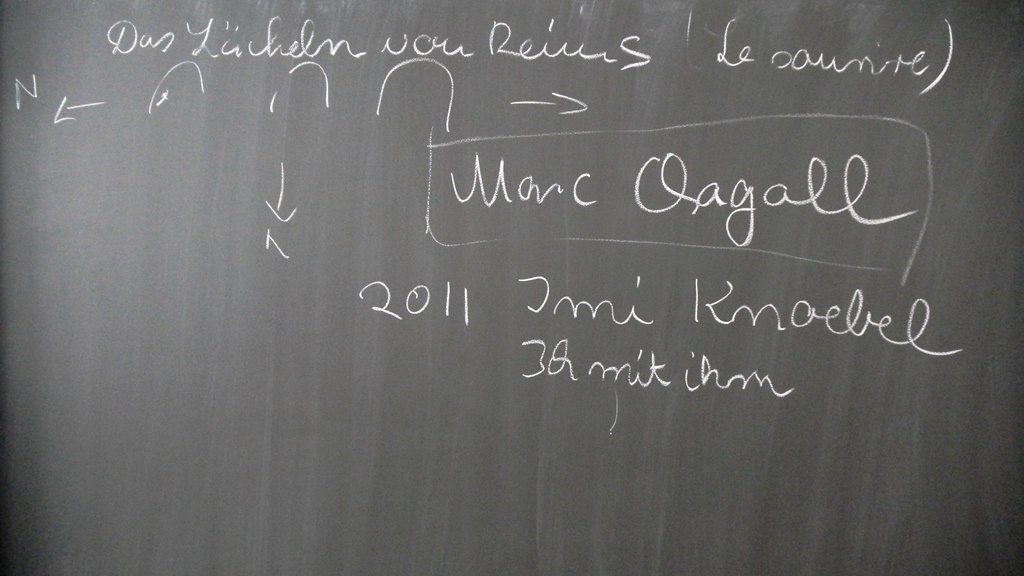 Das Lächeln von Reims (Le sourire)
N
Marc Chagall
2011 Imi Knoebel
mit ihm